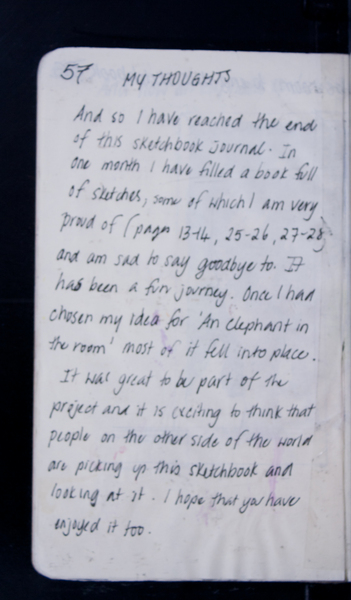 57 MY THOUGHTS
And so I have reached the end
of this sketchbook journal. In
one month I have filled a book full
of sketches, some of which I am very
proud of (pages 13-14, 25-26, 27-28)
and am sad to say goodbye to. It
has been a fun journey. Once I had
chosen my idea for 'An elephant in
the room' most of it fell into place.
It was great to be part of the
project and it is exciting to think that
people on the other side of the world
are picking up this sketchbook and
looking at it. I hope that you have
enjoyed it too.